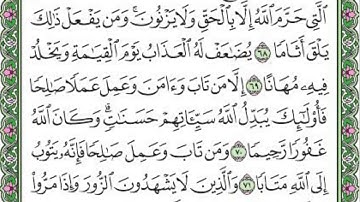 ٱلَّتِي حَرَّمَ ٱللَّهُ إِلَّا بِٱلْحَقِّ وَلَا يَزْنُونَۚ وَمَن يَفْعَلْ ذَٰلِكَ
يَلْقَ أَثَامًا ٦٨ يُضَٰعَفْ لَهُ ٱلْعَذَابُ يَوْمَ ٱلْقِيَٰمَةِ وَيَخْلُدْ
فِيهِۦ مُهَانًا ٦٩ إِلَّا مَن تَابَ وَءَامَنَ وَعَمِلَ عَمَلًا صَٰلِحًا
فَأُو۟لَٰٓئِكَ يُبَدِّلُ ٱللَّهُ سَيِّـَٔاتِهِمْ حَسَنَٰتٍۗ وَكَانَ ٱللَّهُ
غَفُورًا رَّحِيمًا ٧٠ وَمَن تَابَ وَعَمِلَ صَٰلِحًا فَإِنَّهُۥ يَتُوبُ
إِلَى ٱللَّهِ مَتَابًا ٧١ وَٱلَّذِينَ لَا يَشْهَدُونَ ٱلزُّورَ وَإِذَا مَرُّوا۟